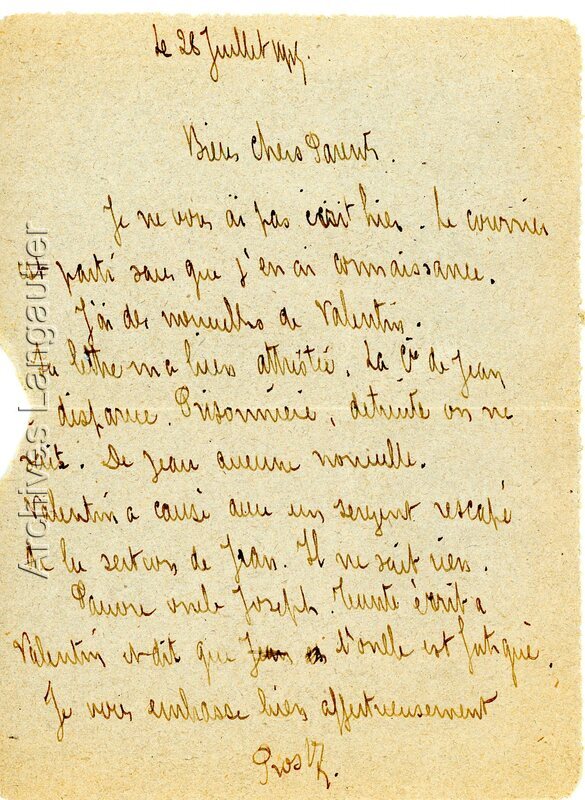 Le 28 Juillet 1915.
Biens Chers Parents.
Je ne vous ai pas écrit hier. Le courrier
est parti sans que j'en ai connaissance.
J'ai des nouvelles de Valentin.
Sa lettre m'a bien attristé. La Cie de Jean
a disparue. Prisonnière, détruite on ne
sait. De Jean aucune nouvelle.
Valentin a causé avec un sergent rescapé
de la section de Jean. Il ne sait rien.
Pauvre oncle Joseph. Tante écrit a
Valentin et dit que l'oncle est fatigué.
Je vous embrasse bien affectueusement
Archives Langautier